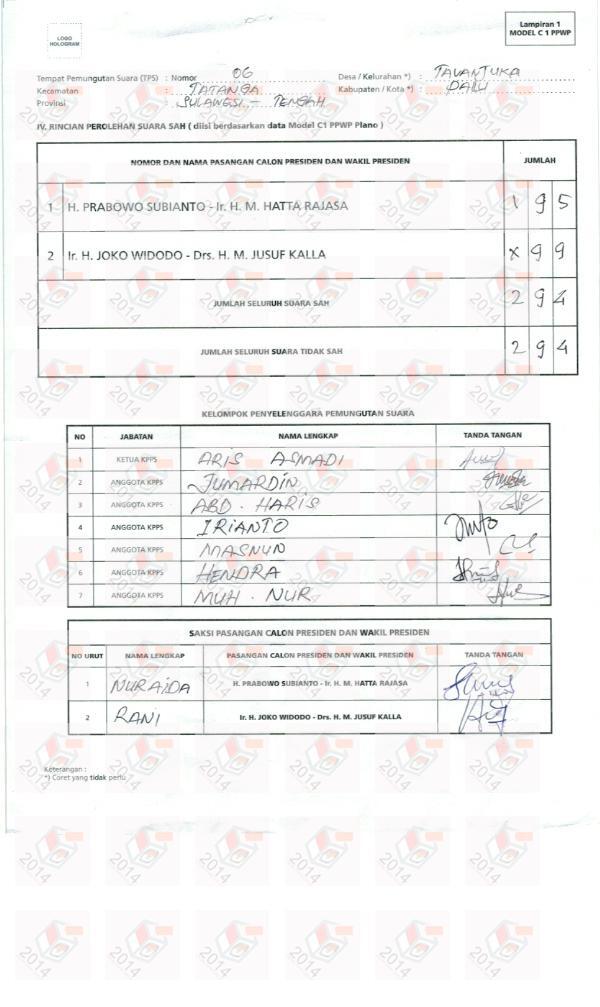 LOGO
HOLOGRAM
Lampiran 1
MODEL C 1 PPWP
Tempat Pemungutan Suara (TPS) : Nomor 06 Desa / Kelurahan *) : TAVANJUKA
Kecamatan : TATANGA Kabupaten / Kota *) : PALU
Provinsi : SULAWESI - TENGAH
IV. RINCIAN PEROLEHAN SUARA SAH ( diisi berdasarkan data Model C1 PPWP Plano )
NOMOR DAN NAMA PASANGAN CALON PRESIDEN DAN WAKIL PRESIDEN JUMLAH
1 H. PRABOWO SUBIANTO - Ir. H. M. HATTA RAJASA 1 9 5
2 Ir. H. JOKO WIDODO - Drs. H. M. JUSUF KALLA X 9 9
JUMLAH SELURUH SUARA SAH 2 9 4
JUMLAH SELURUH SUARA TIDAK SAH 2 9 4
KELOMPOK PENYELENGGARA PEMUNGUTAN SUARA
NO JABATAN NAMA LENGKAP TANDA TANGAN
1 KETUA KPPS ARIS ASMADI
2 ANGGOTA KPPS JUMARDIN
3 ANGGOTA KPPS ABD. HARIS
4 ANGGOTA KPPS IRIANTO
5 ANGGOTA KPPS MASNUN
6 ANGGOTA KPPS HENDRA
7 ANGGOTA KPPS MUH. NUR
SAKSI PASANGAN CALON PRESIDEN DAN WAKIL PRESIDEN
NO URUT NAMA LENGKAP PASANGAN CALON PRESIDEN DAN WAKIL PRESIDEN TANDA TANGAN
1 NURAIDA H. PRABOWO SUBIANTO - Ir. H. M. HATTA RAJASA
2 RANI Ir. H. JOKO WIDODO - Drs. H. M. JUSUF KALLA
Keterangan :
*) Coret yang tidak perlu
2014